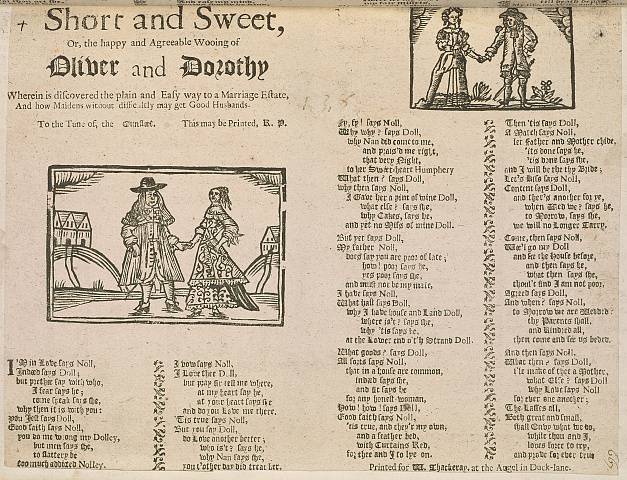 Short and Sweet,
Or, the happy and Agreeable Wooing of
Oliver and Dorothy
Wherein is discovered the plain and Easy way to a Marriage Estate,
And how Maidens without difficultly may get Good Husbands.
To the Tune of, the Cunstare. This may be Printed, R. P.
I'M in Love says Noll,
Indeed says Doll;
but prethee say with who,
I fear says he;
come speak says she,
why then it is with you:
you Jest says Doll,
Good faith says Noll,
you do me wrong my Dolley,
but men says she,
to flattery be
too much addicted Nolley.
I vow says Noll,
I Love thee Doll,
but pray sir tell me where,
at my heart say he,
at your heart says she
and do you Love me there.
'Tis true says Noll,
But you say Doll,
do Love another better;
who is't? says he,
why Nan says she,
you t'other day did treat her.
Fy, fy! says Noll,
Why why? says Doll,
why Nan did come to me,
and prais'd me right,
that very Night,
to her Sweet-heart Humphery
What then? says Doll,
why then says Noll,
I Gave her a pint of wine Doll,
what else? says she,
why Cakes, says he,
and yet no Miss of mine Doll.
But yet says Doll,
My father Noll,
does say you are poor of late;
how! poor says he,
yes poor says she,
and must not be my mate,
I have says Noll,
What hast says Doll,
why I have house and Land Doll,
where is't? says she,
why 'tis says he,
at the Lower end o'th Strand Doll.
What goods? says Doll,
All sorts says Noll,
that in a house are common,
indeed says she,
and fit says he
for any honest woman,
How! how! says Doll,
Good faith says Noll,
'tis true, and they'r my own;
and a feather bed,
with Curtains Red,
for thee and I to lye on.
Then 'tis says Doll,
A Match says Noll,
let father and Mother chide,
'tis done says he,
'tis done says she,
and I will be the thy Bride;
Let's kiss says Noll,
Content says Doll,
and ther's another for ye,
when Wed we? says he,
to Morrow, says she,
we will no Longer Tarry.
Come, then says Noll,
We'l go my Doll
and see the House before,
and then says he,
what then says she,
thou'lt find I am not poor,
Agreed says Doll,
And when? says Noll,
to Morrow we are Wedded?
thy Parents shall,
and kindred all,
then come and see us bedded.
And then says Noll,
What then? says Doll,
i'le make of thee a Mother,
what Else? says Doll
why Love says Noll
for ever one another;
The Lasses all,
Both great and small,
shall Envy what we do,
while thou and I,
lou's force to try,
and prove for ever true
Printed for W. Thackeray, at the Angel in Duck-lane.